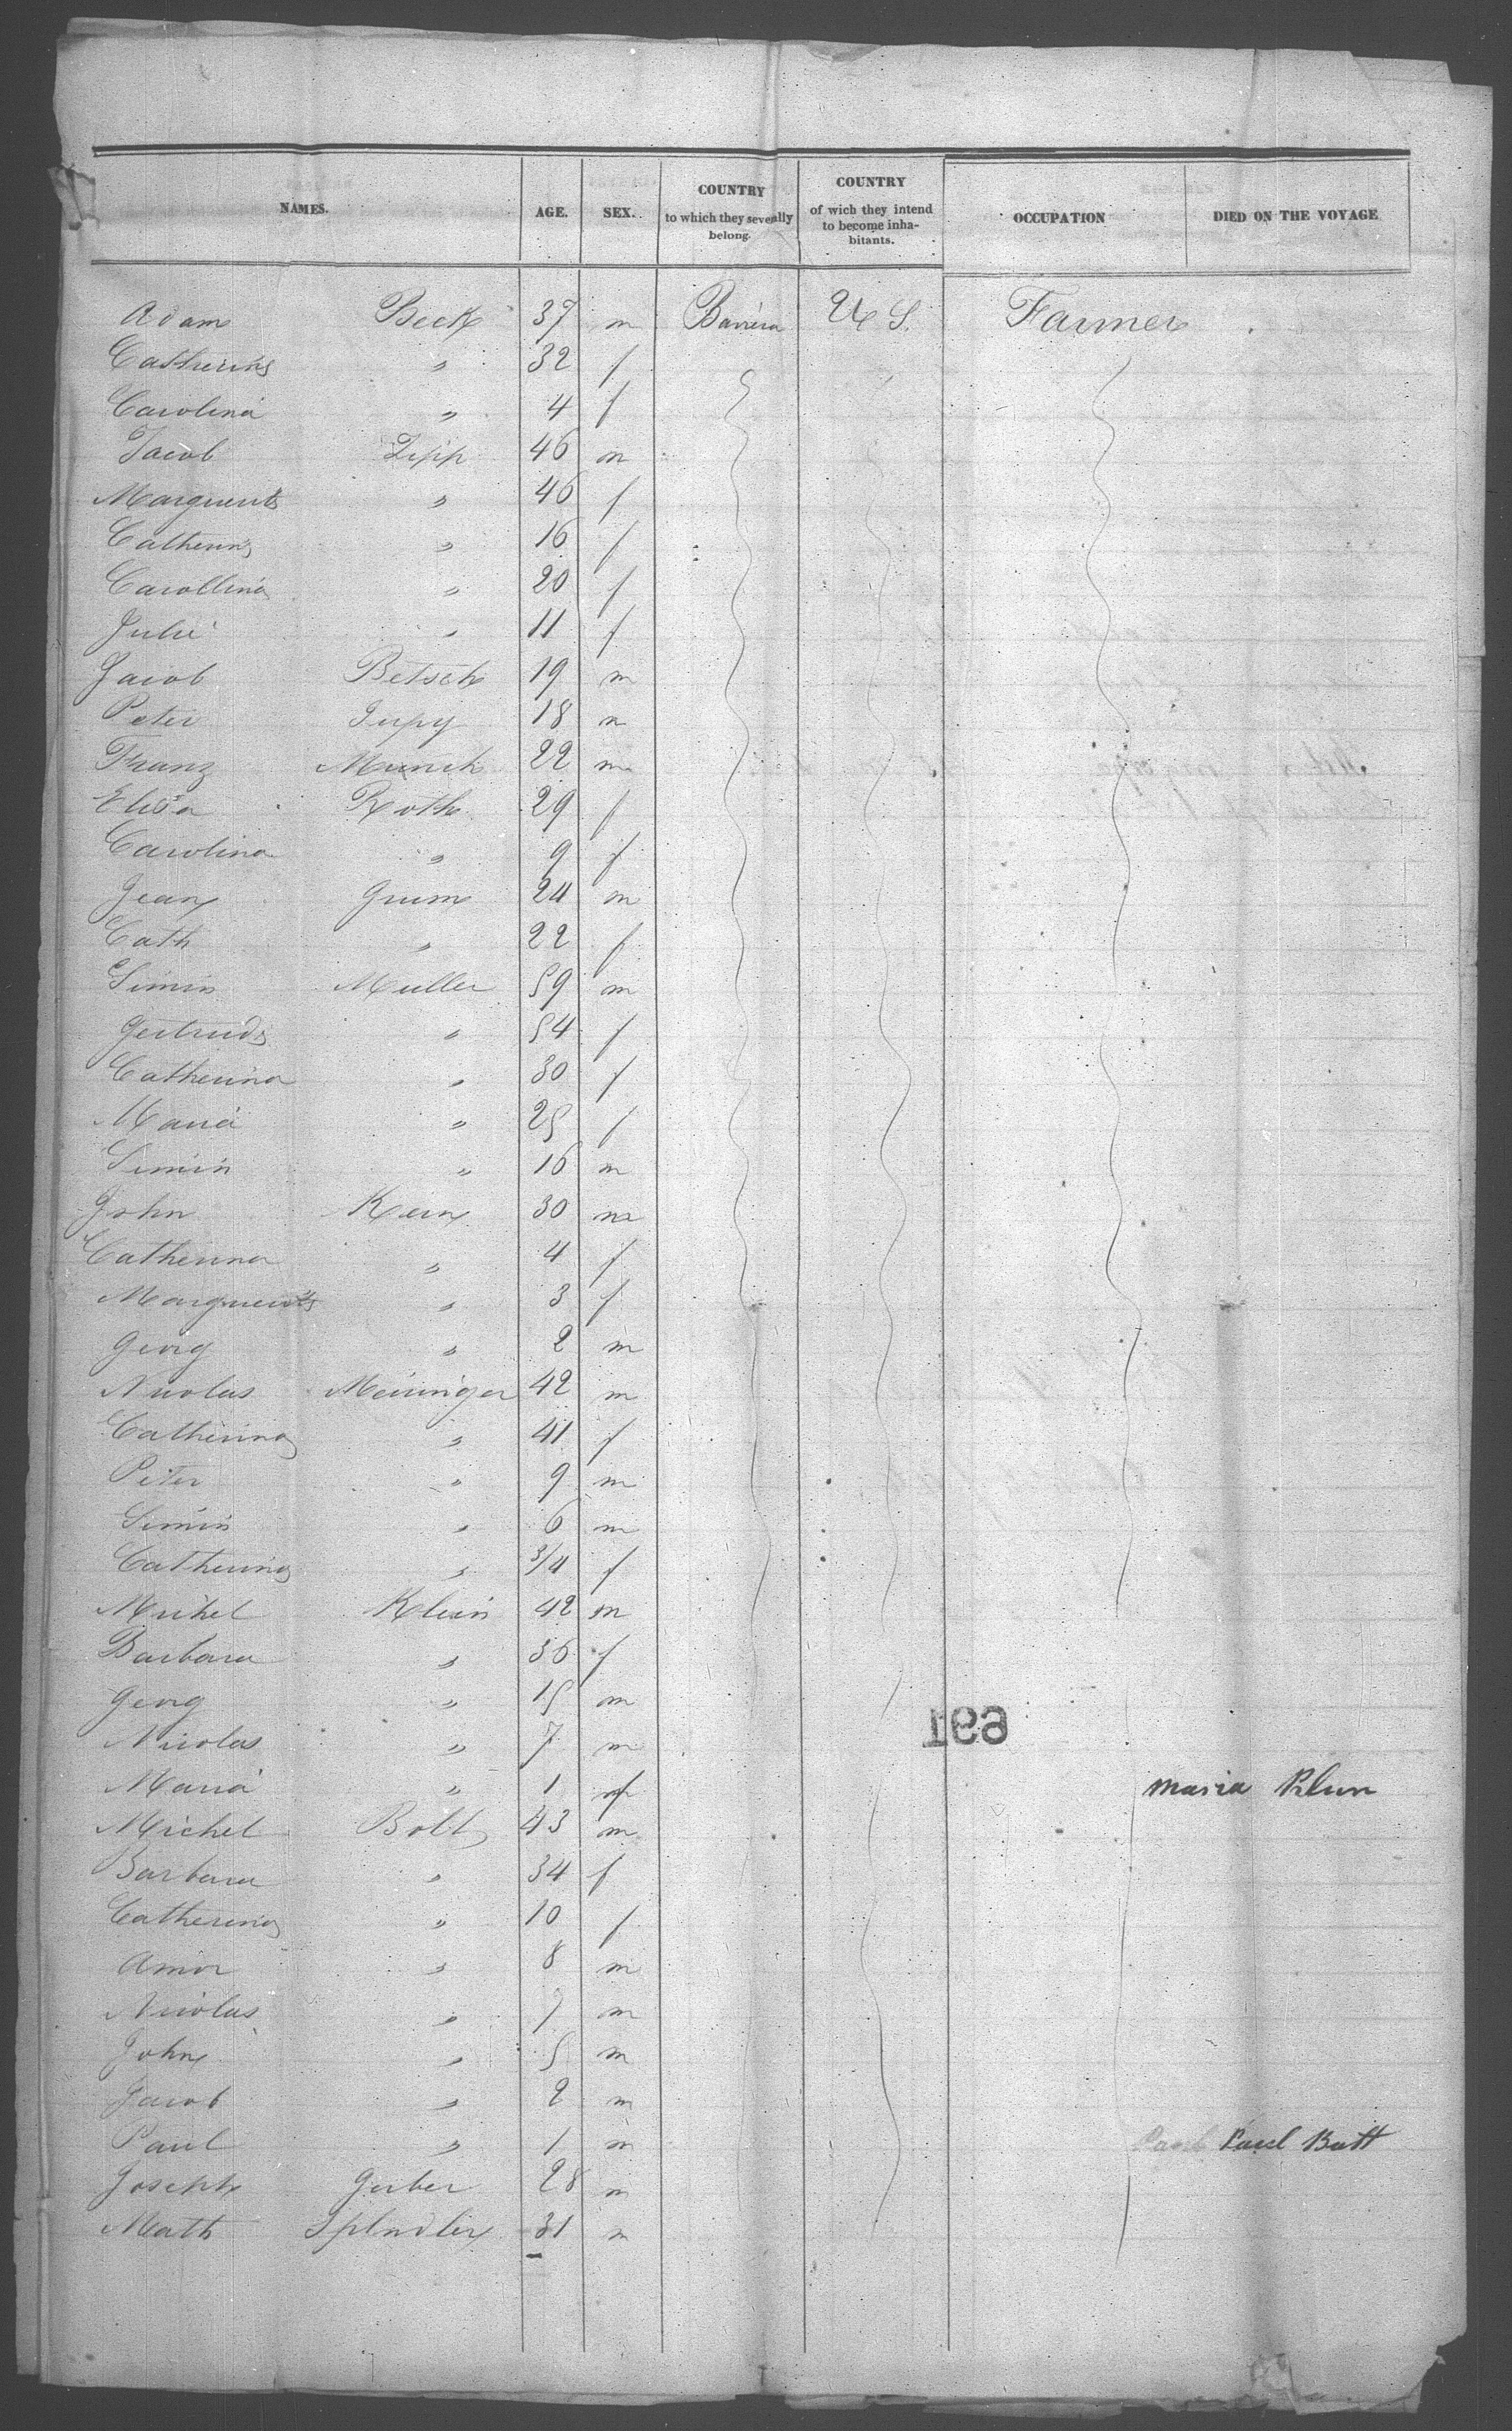 NAMES. AGE. SEX. COUNTRY to which they severally belong. COUNTRY of wich they intend to become inhabitants. OCCUPATION DIED ON THE VOYAGE
Adam Beck 37 m Baviera U S. Farmer
Catherina " 32 f
Carolina " 4 f
Jacob Zipp 46 m
Marguerite " 46 f
Catherina " 16 f
Carollina " 20 f
Julie " 11 f
Jacob Betsch 19 m
Peter 18 m
Franz Munch 22 m
Elisa Roth 29 f
Carolina " 9 f
Jean Grum 24 m
Cath " 22 f
Simin Muller 59 m
Gertrude " 54 f
Catherina " 30 f
Maria " 25 f
Simin " 16 m
John Kern 30 m
Catherina " 4 f
Marguerite " 3 f
Georg " 2 m
Nicolas Meininger 42 m
Catherina " 41 f
Peter " 9 m
Simin " 6 m
Catherina " 3/4 f
Michel Klein 42 m
Barbara " 36 f
Georg " 15 m
Nicolas " 7 m
Maria " 1 f Maria Klun
Michel Bott 43 m
Barbara " 34 f
Catherina " 10 f
Amor " 8 m
Nicolas " 7 m
John " 5 m
Jacob " 2 m
Paul " 1 m Paul Paul Butt
Joseph Gerber 28 m
Math 31 m